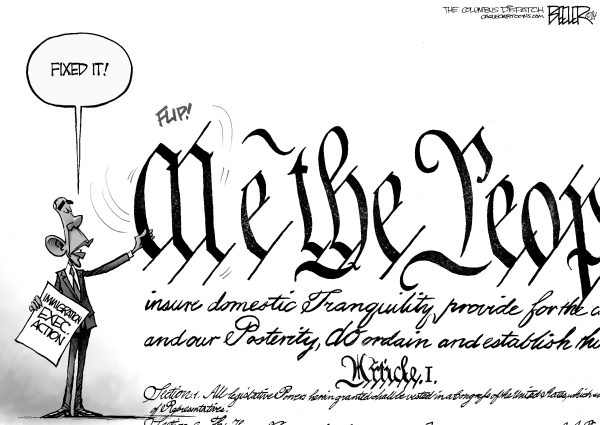 THE COLUMBUS DISPATCH
CAGLECARTOONS.COM
BEELER
FIXED IT!
FLIP!
Me the Peop
IMMIGRATION
EXEC.
ACTION
insure domestic Tranquility, provide for the c
and our Posterity, do ordain and establish this
Article. I.
Section. 1. All legislative Powers herein granted shall be vested in a Congress of the United States, which
of Representatives.